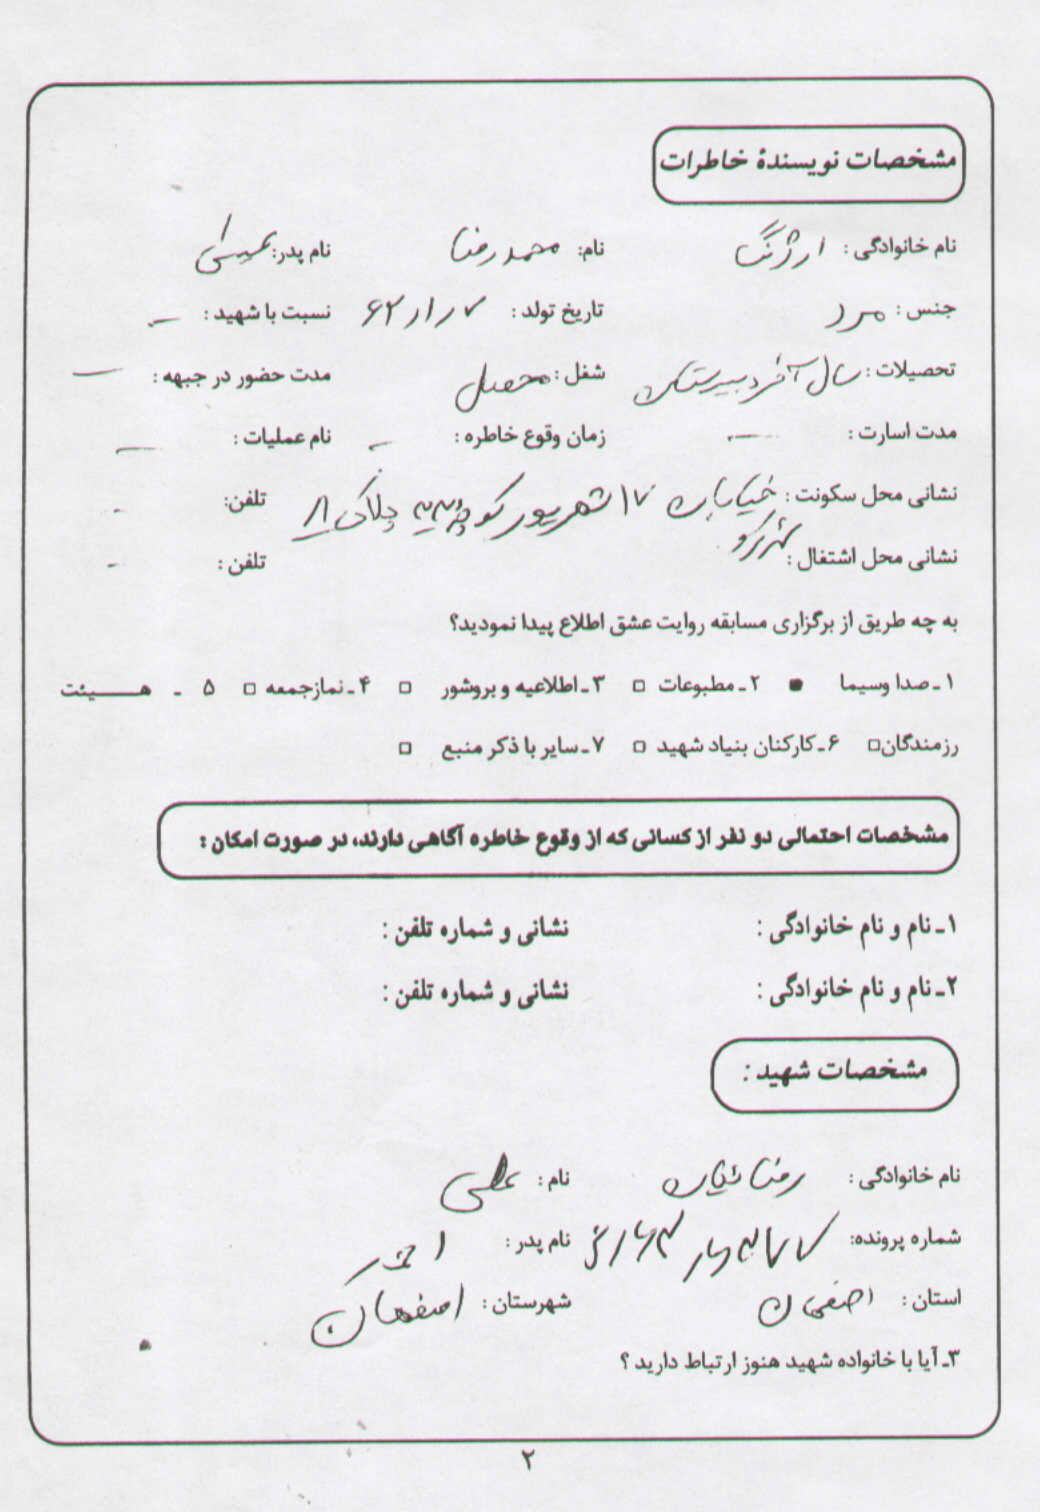 مشخصات نویسندهٔ خاطرات
نام خانوادگی : ارژنگ نام: محمدرضا نام پدر: عیسی
جنس : مرد تاریخ تولد : ۶۲/۱/۷ نسبت با شهید : ـ
تحصیلات : سال آخر دبیرستان شغل : محصل مدت حضور در جبهه : ـ
مدت اسارت : ـ زمان وقوع خاطره : ـ نام عملیات : ـ
نشانی محل سکونت : خیابان ۱۷ شهریور کوچه پلاک ۸ تلفن: ـ
نشانی محل اشتغال : تلفن : ـ
به چه طریق از برگزاری مسابقه روایت عشق اطلاع پیدا نمودید؟
۱ـ صدا وسیما ■ ۲ـ مطبوعات □ ۳ـ اطلاعیه و بروشور □ ۴ـ نمازجمعه □ ۵ ـ هــــیئت
رزمندگان□ ۶ـ کارکنان بنیاد شهید □ ۷ـ سایر با ذکر منبع □
مشخصات احتمالی دو نفر از کسانی که از وقوع خاطره آگاهی دارند، در صورت امکان :
۱ـ نام و نام خانوادگی : نشانی و شماره تلفن :
۲ـ نام و نام خانوادگی : نشانی و شماره تلفن :
مشخصات شهید :
نام خانوادگی : رضائیان نام : علی
شماره پرونده: نام پدر :
استان : اصفهان شهرستان : اصفهان
۳ـ آیا با خانواده شهید هنوز ارتباط دارید ؟
۲